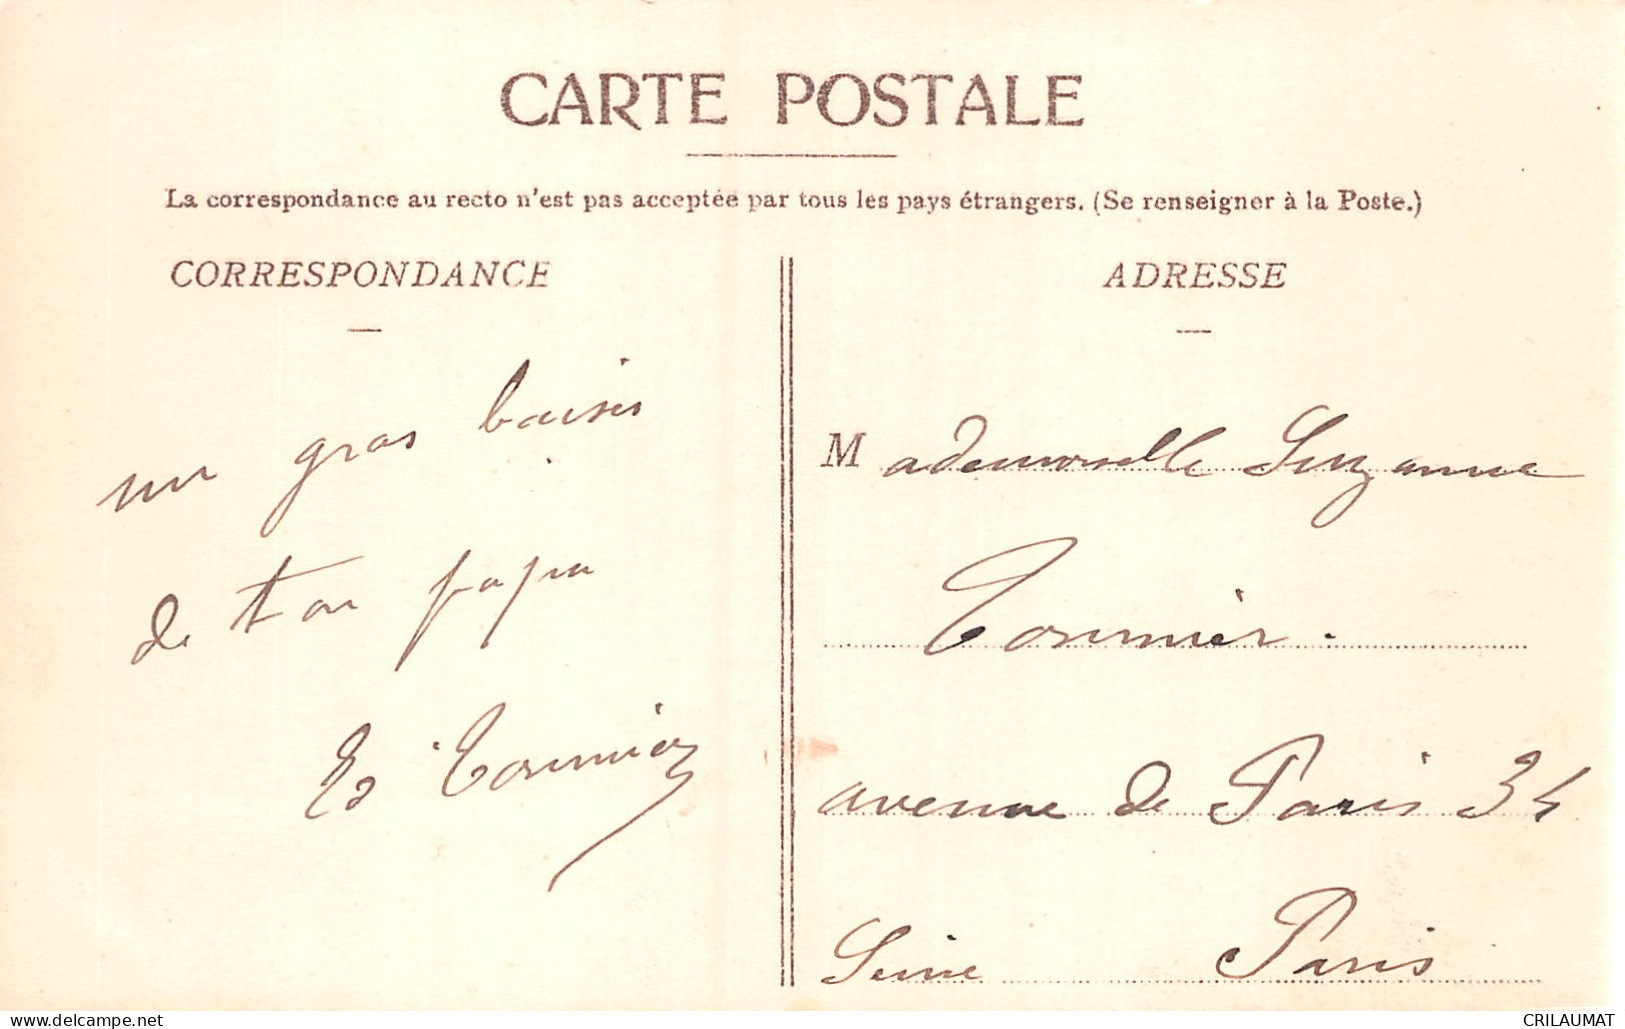 CARTE POSTALE
La correspondance au recto n'est pas acceptée par tous les pays étrangers. (Se renseigner à la Poste.)
CORRESPONDANCE
un gros baiser
de ton papa
Ed Tournier
ADRESSE
Mademoiselle Suzanne
Tournier.
avenue de Paris 34
Seine Paris
delcampe.net
CRILAUMAT